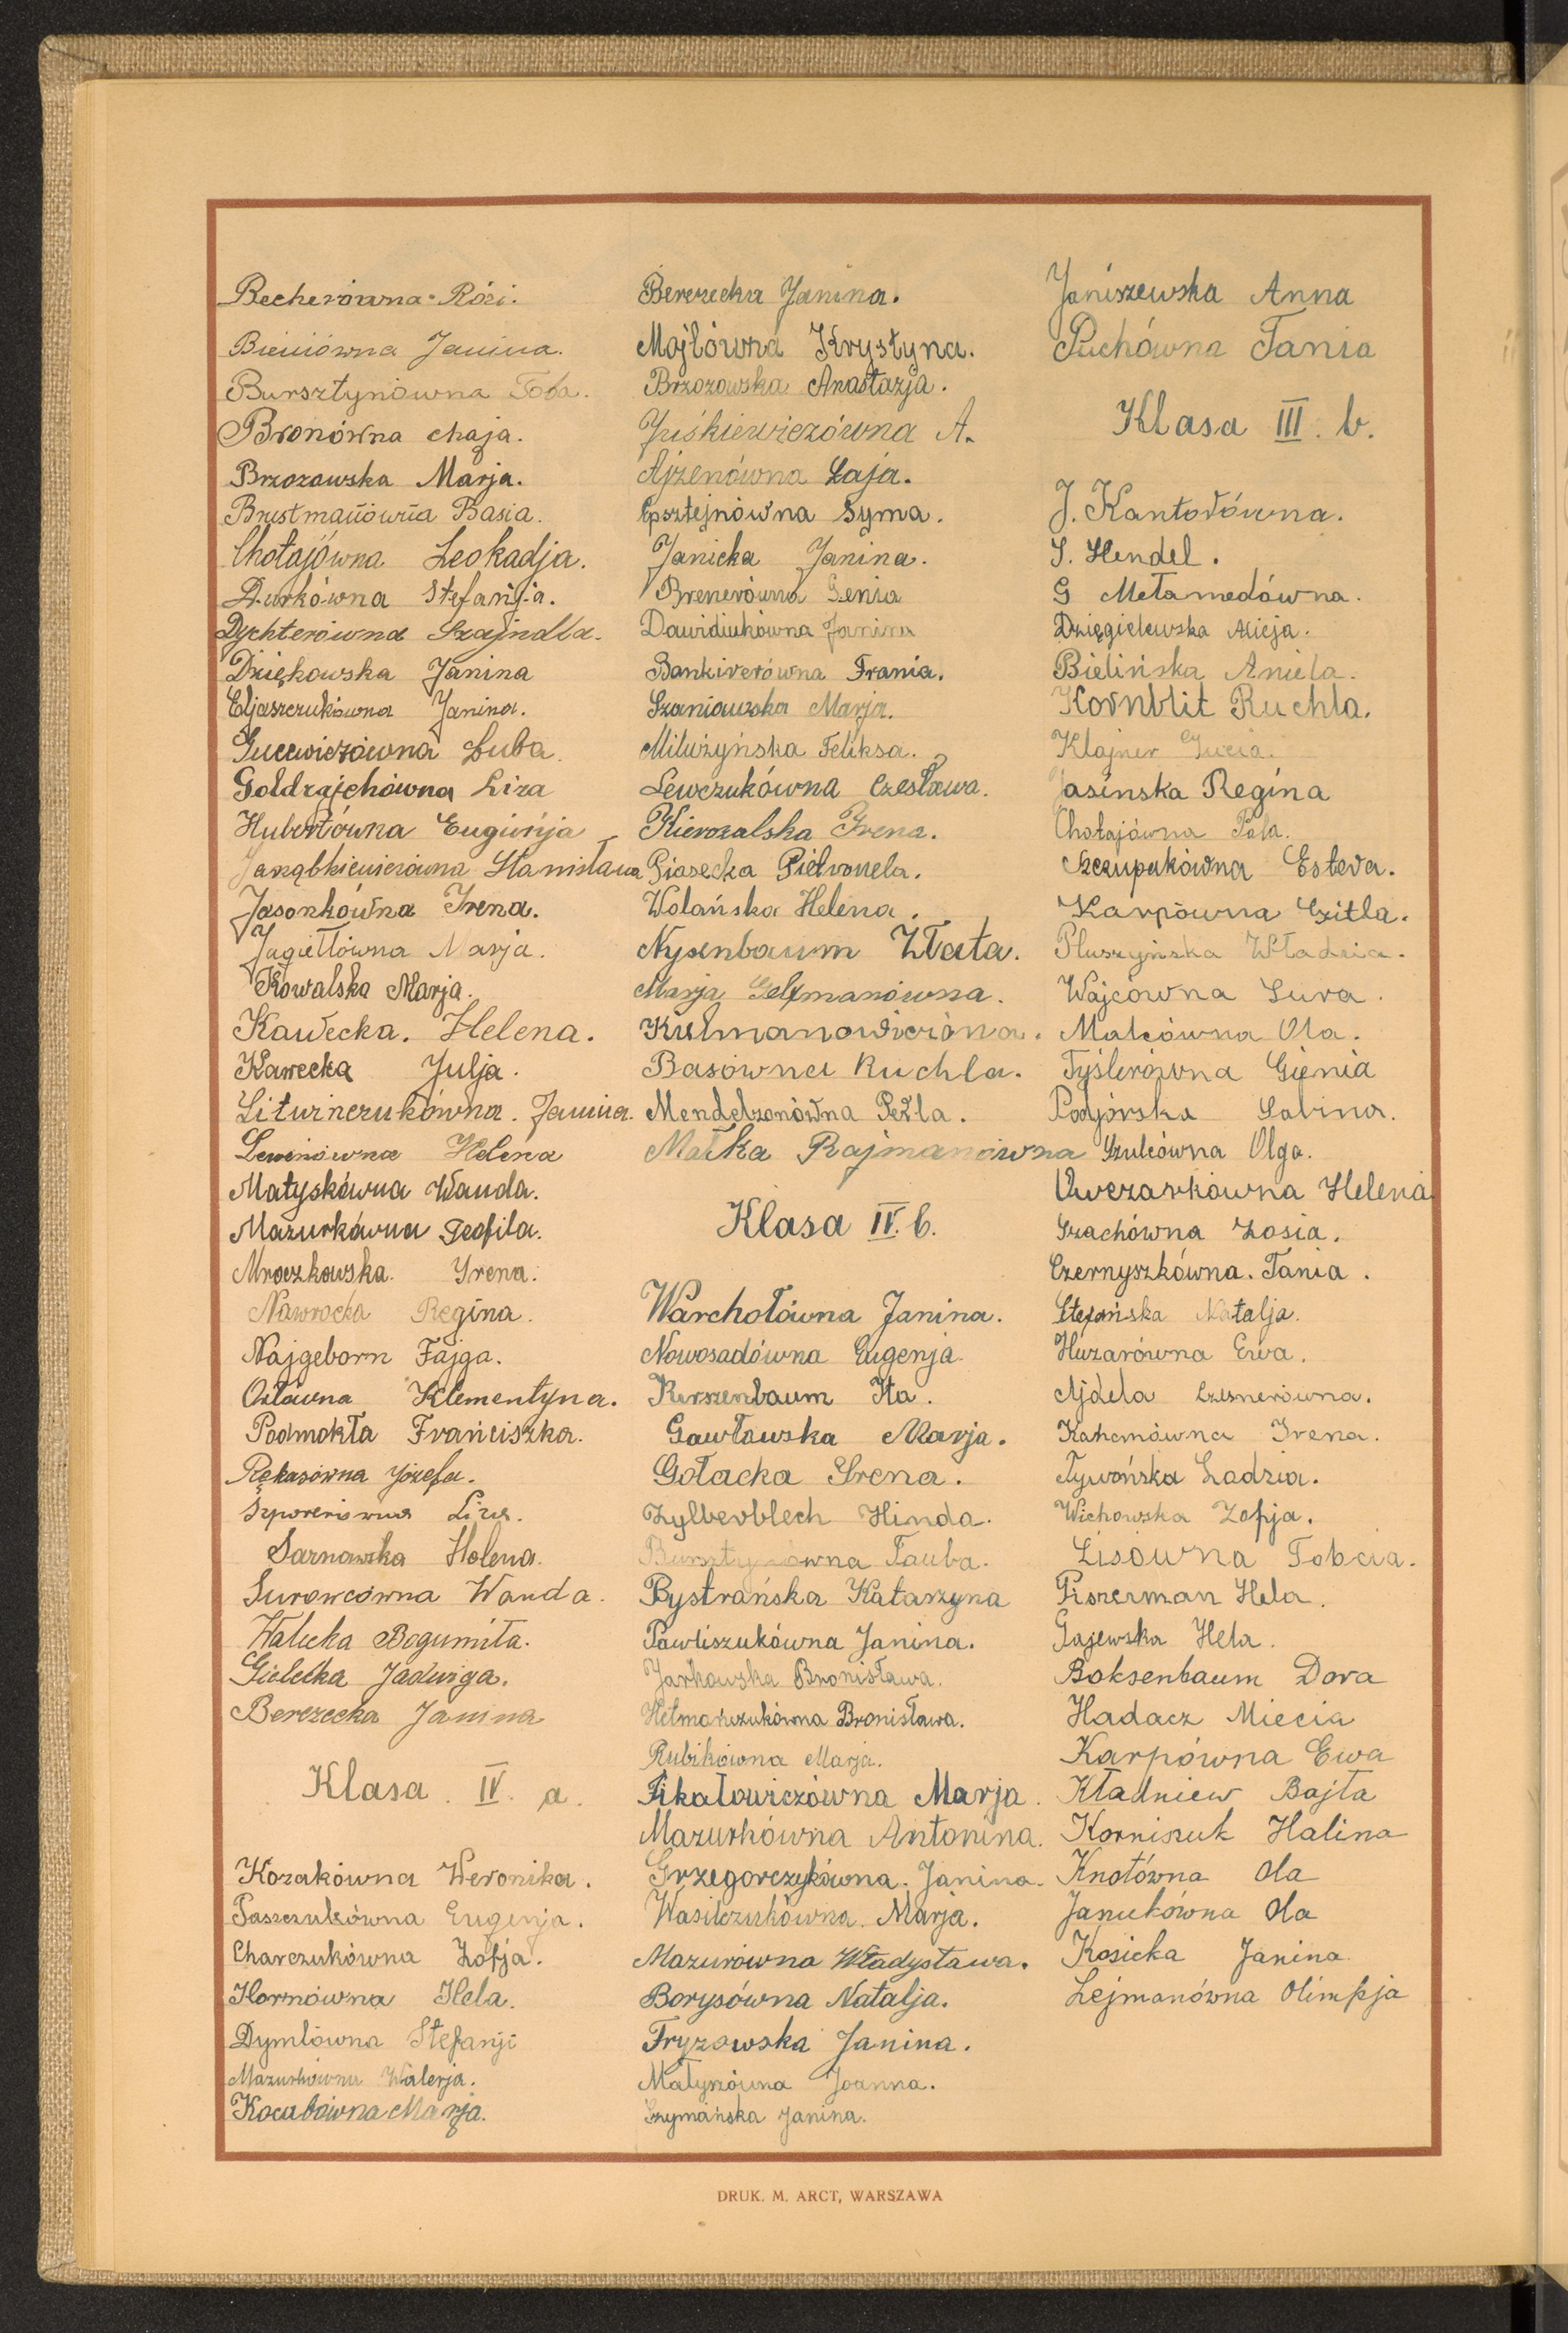 Becherówna Rózi.
Bieniówna Janina.
Bursztynówna Toba.
Bronówna Chaja.
Brzozowska Marja.
Brustmanówna Basia.
Chołajówna Leokadja.
Durkówna Stefanja.
Dychterówna Szajndla.
Dziękowska Janina
Eljaszczukówna Janina.
Gucewiczówna Luba.
Goldrajchówna Liza
Hubertówna Eugienja
Jarząbkiewiczówna Stanisława
Jasonkówna Irena.
Jagiełłówna Marja.
Kowalska Marja.
Kawecka. Helena.
Kawecka Julja.
Litwinczukówna. Janina.
Lewinówna Helena
Matyskówna Wanda.
Mazurkówna Teofila.
Mroczkowska. Irena.
Nawrocka Regina.
Najgeborn Fajga.
Oziówna Klementyna.
Podmokła Franciszka.
Rękasówna Józefa.
Szporerówna Liza.
Sarnowska Helena.
Surowcówna Wanda.
Walicka Bogumiła.
Gielecka Jadwiga.
Berezecka Janina
Klasa IV. a.
Kozakówna Weronika.
Paszczukówna Eugenja.
Charczukówna Zofja.
Hornówna Hela.
Dymlówna Stefanji
Mazurkówna Walerja.
Kocubówna Marja.
Berezecka Janina.
Mojłówna Krystyna.
Brzozowska Anastazja.
Juśkiewiczówna A.
Ajzenówna Łaja.
Epsztejnówna Syma.
Janicka Janina.
Brenerówna Genia
Dawidiukówna Janina
Bankwerówna Frania.
Szaniawska Marja.
Milużyńska Feliksa.
Lewczukówna Czesława.
Kierzalska Irena.
Piasecka Pietronela.
Wolańska Helena.
Nysenbaum Złata.
Marja Gelmanówna.
Kulmanowiczówna.
Basówna Ruchla.
Mendelzonówna Perla.
Małka Rajmanówna
Klasa IV. b.
Warchołówna Janina.
Nowosadówna Eugenja.
Kerszenbaum Ita.
Gawłowska Marja.
Gołacka Irena.
Zylberblech Hinda.
Bursztynówna Tauba.
Bystrańska Katarzyna
Pawliszukówna Janina.
Jarkowska Bronisława.
Hetmańczukówna Bronisława.
Rubikówna Marja.
Fikałowiczówna Marja.
Mazurkówna Antonina.
Grzegorczykówna. Janina.
Wasilczukówna. Marja.
Mazurówna Władysława.
Borysówna Natalja.
Fryzowska Janina.
Matyszówna Joanna.
Szymańska Janina.
Janiszewska Anna
Puchówna Tania
Klasa III. b.
J. Kantorówna.
S. Hendel.
G Metamedówna.
Dzięgielewska Alicja.
Bielińska Aniela.
Kornblit Ruchla.
Klajner Gucia.
Jasińska Regina
Chołajówna Pola.
Szczupakówna Estera.
Karpówna Gitla.
Pluszyńska Władzia.
Wajcówna Sura.
Malcówna Ola.
Tyślerówna Gienia
Podjórska Sabina.
Szulcówna Olga.
Owczarkówna Helena
Grachówna Zosia.
Czernyszkówna. Tania.
Stefańska Natalja.
Huzarówna Ewa.
Ajdela Lzesnerówna.
Kahanówna Irena.
Tywońska Ladzia.
Wichowska Zofja.
Lisówna Tobcia.
Fiszerman Hela.
Gajewska Hela.
Boksenbaum Dora
Hadacz Miecia
Karpówna Ewa
Kładniew Bajła
Korniszuk Halina
Knotówna Ola
Janukówna Ola
Kosicka Janina
Lejmanówna Olimpja
DRUK. M. ARCT, WARSZAWA